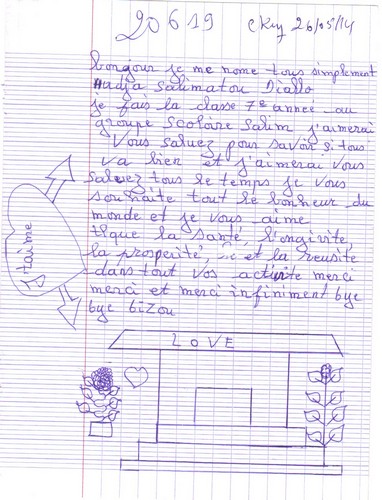 20619
Cky 26/05/14
bongour je me nome tous simplement
Hadja Salimatou Diallo
je fais la classe 7e année au
groupe scolaire Salim j'aimerai
Vous saluez pour savoir si tous
va bien et j'aimerai vous
saluez tous le temps je vous
souhaite tout le bonheur du
monde et je vous aime
tique la santé, longivite,
la prosperité, et la reusite
dans tout vos activite merci
merci et merci infiniment bye
bye bizou
Jtaime
LOVE